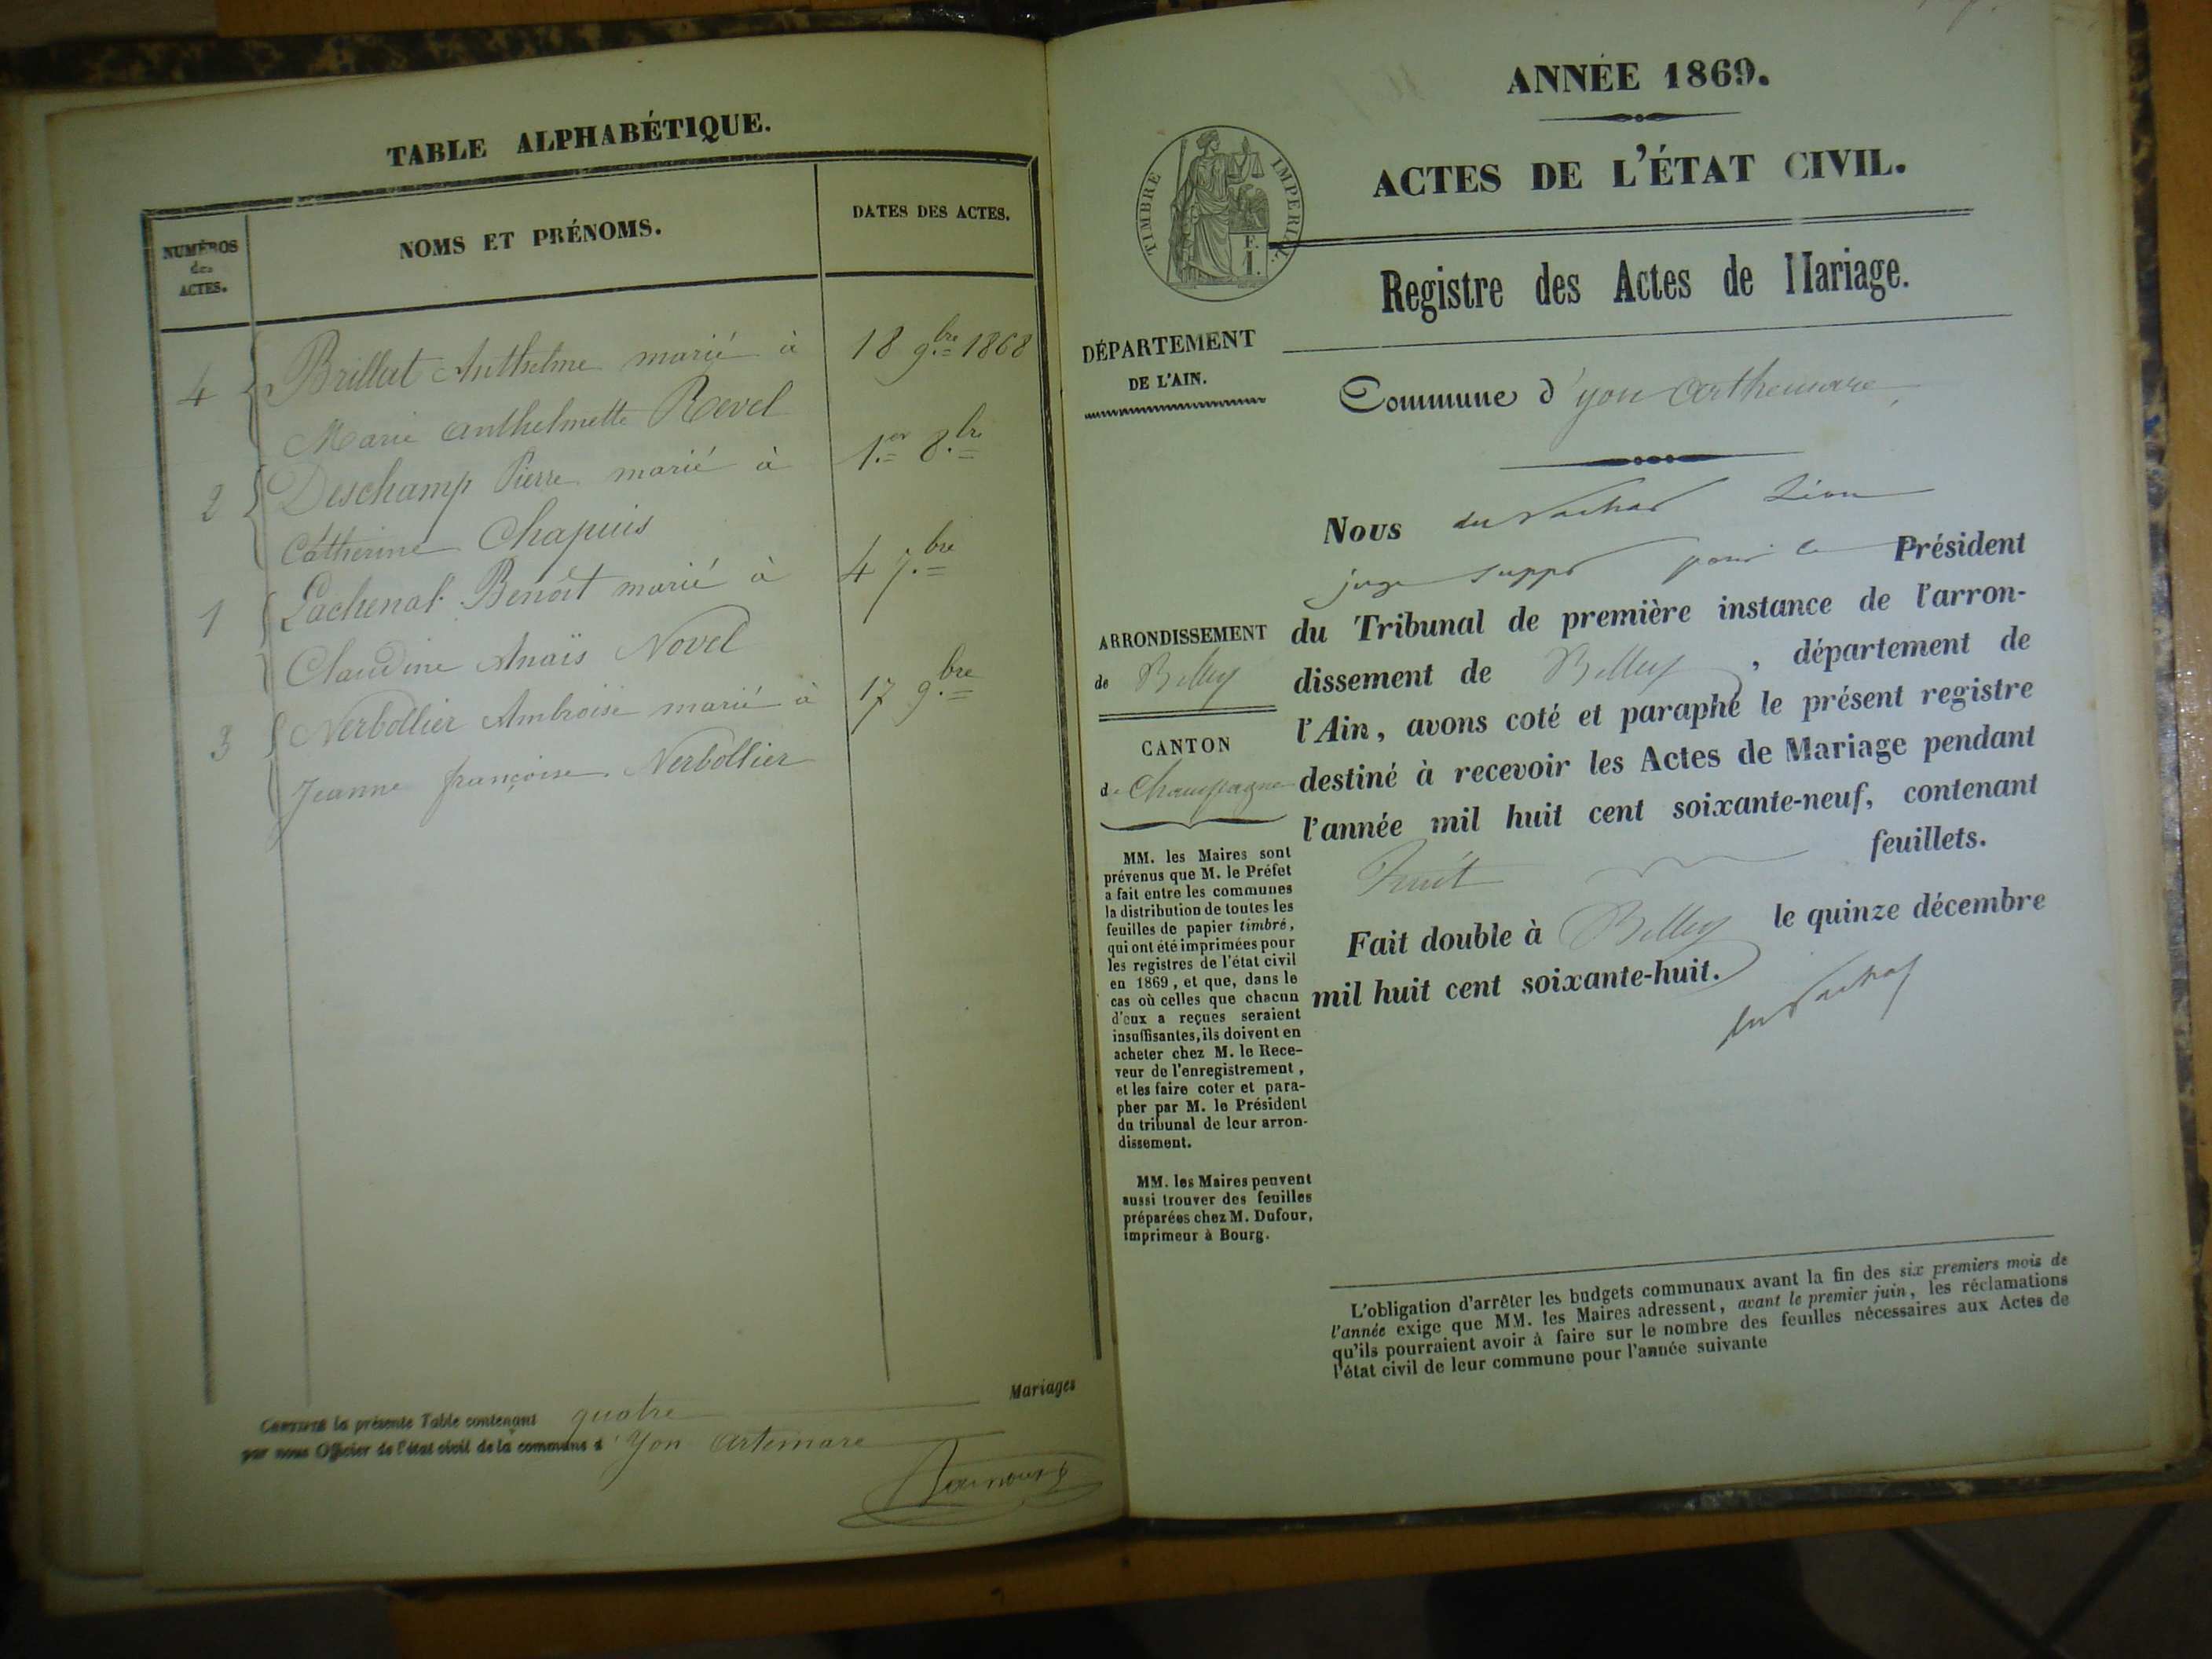 TABLE ALPHABÉTIQUE.
NUMÉROS
des
ACTES.
NOMS ET PRÉNOMS.
DATES DES ACTES.
4 Brillat Anthelme marié à 18 9.bre 1868
Marie anthelmette Revel
2 Deschamp Pierre marié à 1.er 8.bre
Catherine Chapuis
1 Lachenal Benoît marié à 4 7.bre
Claudine Anaïs Novel
3 Nerbollier Ambroise marié à 17 9.bre
Jeanne françoise Nerbollier
CERTIFIÉ la présente Table contenant quatre Mariages
par nous Officier de l'état civil de la commune d'Yon Artemare
ANNÉE 1869.
ACTES DE L'ÉTAT CIVIL.
TIMBRE IMPERIAL
F.
1.
Registre des Actes de Mariage.
DÉPARTEMENT
DE L'AIN.
Commune d'yon arthemare
Nous Léon
juge supp pour le Président
du Tribunal de première instance de l'arron-
dissement de Belley, département de
l'Ain, avons coté et paraphé le présent registre
destiné à recevoir les Actes de Mariage pendant
l'année mil huit cent soixante-neuf, contenant
huit feuillets.
Fait double à Belley le quinze décembre
mil huit cent soixante-huit.
ARRONDISSEMENT
de Belley
CANTON
de Champagne
MM. les Maires sont
prévenus que M. le Préfet
a fait entre les communes
la distribution de toutes les
feuilles de papier timbré,
qui ont été imprimées pour
les registres de l'état civil
en 1869, et que, dans le
cas où celles que chacun
d'eux a reçues seraient
insuffisantes, ils doivent en
acheter chez M. le Rece-
veur de l'enregistrement,
et les faire coter et para-
pher par M. le Président
du tribunal de leur arron-
dissement.
MM. les Maires peuvent
aussi trouver des feuilles
préparées chez M. Dufour,
imprimeur à Bourg.
L'obligation d'arrêter les budgets communaux avant la fin des six premiers mois de
l'année exige que MM. les Maires adressent, avant le premier juin, les réclamations
qu'ils pourraient avoir à faire sur le nombre des feuilles nécessaires aux Actes de
l'état civil de leur commune pour l'année suivante